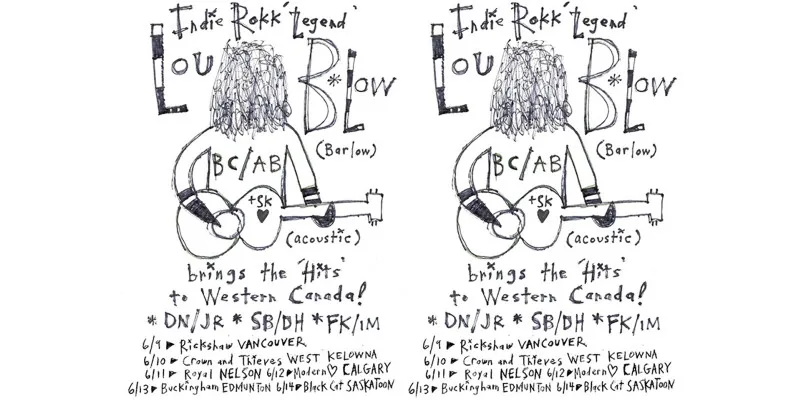 Indie Rokk 'Legend'
LOU B*LOW
(Barlow)
BC/AB
+SK
(acoustic)
brings the 'Hits'
to Western Canada!
* DN/JR * SB/DH * FK/IM
6/9 ▶ Rickshaw VANCOUVER
6/10 ▶ Crown and Thieves WEST KELOWNA
6/11 ▶ Royal NELSON 6/12 ▶ Modern♡ CALGARY
6/13 ▶ Buckingham EDMUNTON 6/14 ▶ Black Cat SASKATOON
Indie Rokk 'Legend'
LOU B*LOW
(Barlow)
BC/AB
+SK
(acoustic)
brings the 'Hits'
to Western Canada!
* DN/JR * SB/DH * FK/IM
6/9 ▶ Rickshaw VANCOUVER
6/10 ▶ Crown and Thieves WEST KELOWNA
6/11 ▶ Royal NELSON 6/12 ▶ Modern♡ CALGARY
6/13 ▶ Buckingham EDMUNTON 6/14 ▶ Black Cat SASKATOON